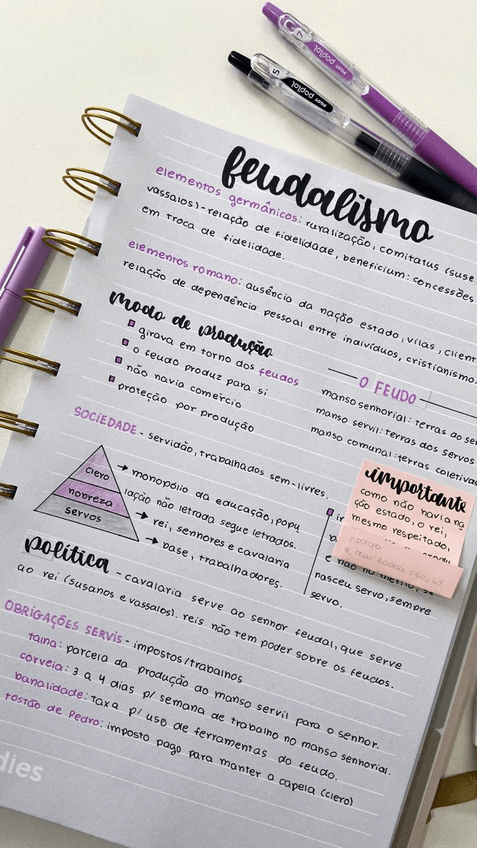 feudalismo
elementos germânicos: ruralização, comitatus (suse
vassalos)-relação de fidelidade, beneficium: concessões
em troca de fidelidade.
elementos romano: ausência da nação estado, vilas, client
relação de dependência pessoal entre indivíduos, cristianismo.
modo de produção
girava em torno dos feudos
o feudo produz para si
não havia comércio
proteção por produção
O FEUDO
manso senhorial: terras do se
manso servil: terras dos servos
manso comunal: terras coletiva
SOCIEDADE - servidão, trabalhados sem-livres.
clero
nobreza
servos
→ monopólio da educação, popu
lação não letrada segue letrados.
→ rei, senhores e cavalaria
→ base, trabalhadores.
importante
como não havia na
ção estado, o rei,
mesmo respeitado,
e não no mérito, se
nasceu servo, sempre
servo.
política - cavalaria serve ao senhor feudal, que serve
ao rei (susanos e vassalos). reis não tem poder sobre os feudos.
OBRIGAÇÕES SERVIS - impostos/trabalhos
talha: parcela da produção do manso servil para o senhor.
corveia: 3 a 4 dias p/ semana de trabalho no manso senhorial.
banalidade: taxa p/ uso de ferramentas do feudo.
tostão de Pedro: imposto pago para manter a capela (clero)
dies